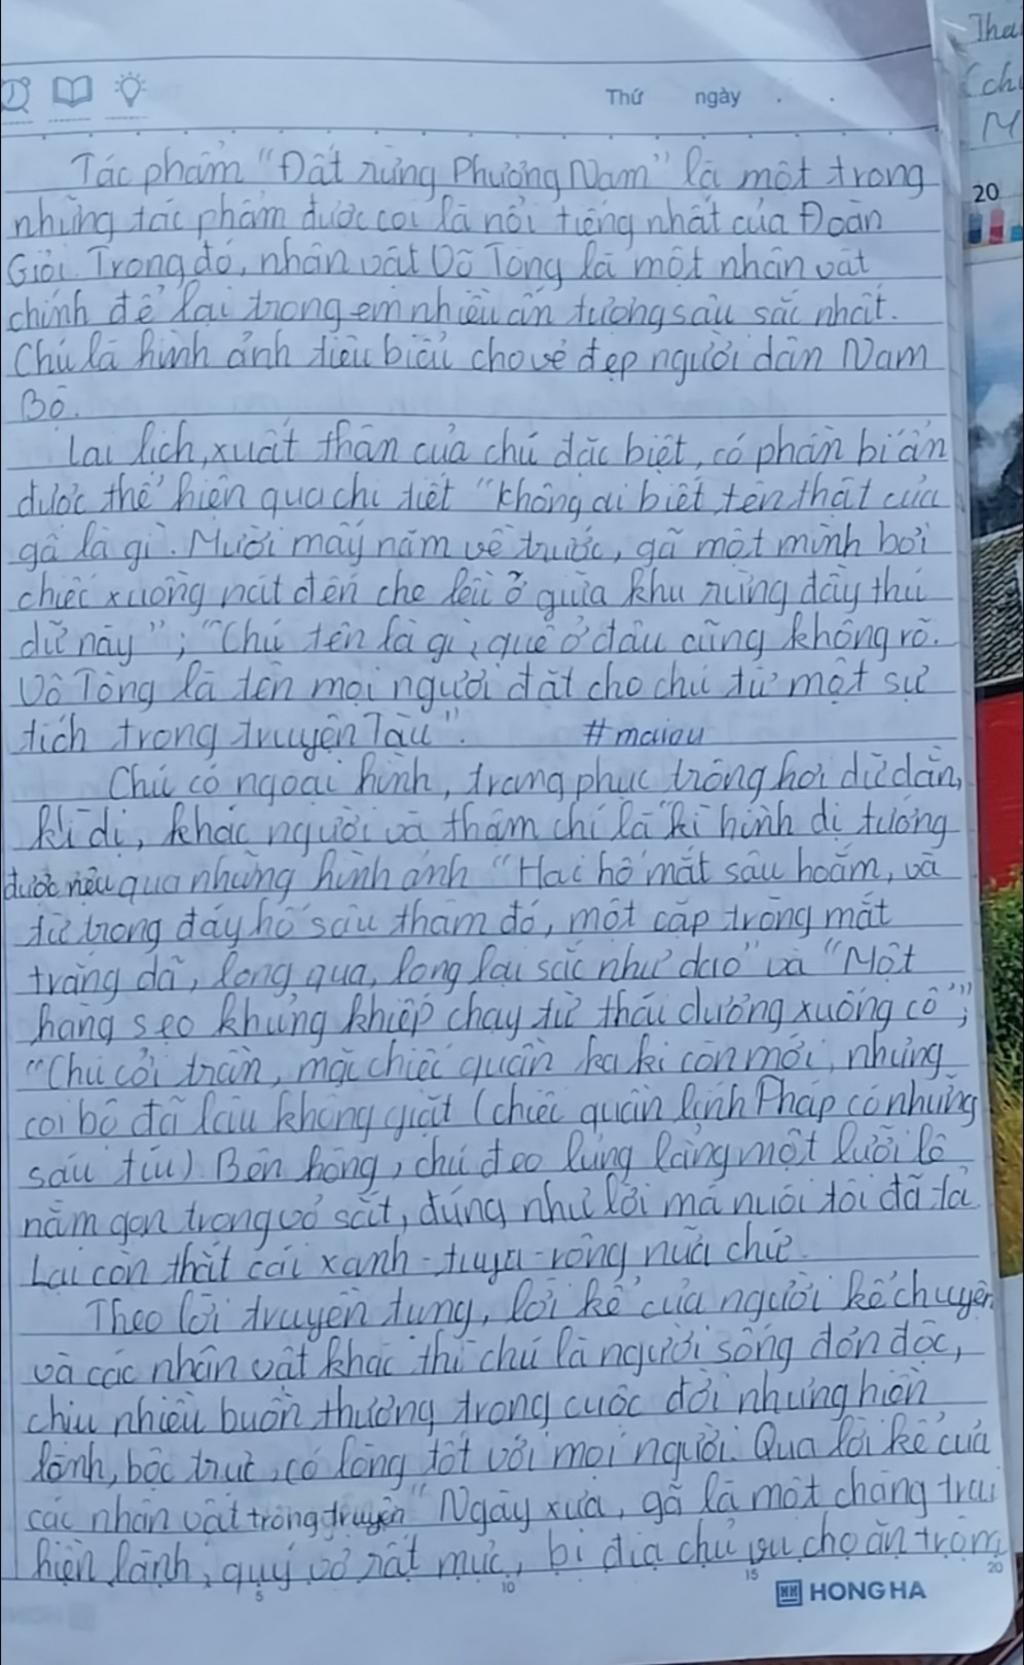 Thứ ngày
Tác phẩm "Đất rừng Phương Nam" là một trong
những tác phẩm được coi là nổi tiếng nhất của Đoàn
Giỏi. Trong đó, nhân vật Võ Tòng là một nhân vật
chính để lại trong em nhiều ấn tượng sâu sắc nhất.
Chú là hình ảnh tiêu biểu cho vẻ đẹp người dân Nam
Bộ.
Lai lịch, xuất thân của chú đặc biệt, có phần bí ẩn
được thể hiện qua chi tiết "không ai biết tên thật của
gã là gì. Mười mấy năm về trước, gã một mình bơi
chiếc xuồng nát đến che lều ở giữa khu rừng đầy thú
dữ này"; "Chú tên là gì, quê ở đâu cũng không rõ.
Võ Tòng là tên mọi người đặt cho chú từ một sự
tích trong truyện Tàu". #maiou
Chú có ngoại hình, trang phục trông hơi dữ dằn,
kì dị, khác người và thậm chí là kì hình dị tướng
được nêu qua những hình ảnh "Hai hố mắt sâu hoắm, và
từ trong đáy hố sâu thẳm đó, một cặp tròng mắt
trắng dã, long qua, long lại sắc như dao" và "Một
hàng sẹo khủng khiếp chạy từ thái dương xuống cổ";
"Chú cởi trần, mặc chiếc quần ka ki còn mới, nhưng
coi bộ đã lâu không giặt (chiếc quần lính Pháp có những
sáu túi). Bên hông, chú đeo lủng lẳng một lưỡi lê
nằm gọn trong vỏ sắt, đúng như lời má nuôi tôi đã tả.
Lại còn thắt cái xanh-tuya-rông nữa chứ.
Theo lời truyền tụng, lời kể của người kể chuyện
và các nhân vật khác thì chú là người sống đơn độc,
chịu nhiều buồn thương trong cuộc đời nhưng hiền
lành, bộc trực, có lòng tốt với mọi người. Qua lời kể của
các nhân vật trong truyện "Ngày xưa, gã là một chàng trai
hiền lành, quý vợ rất mực, bị địa chủ vu cho ăn trộm
5 10 15 20
HONG HA
20